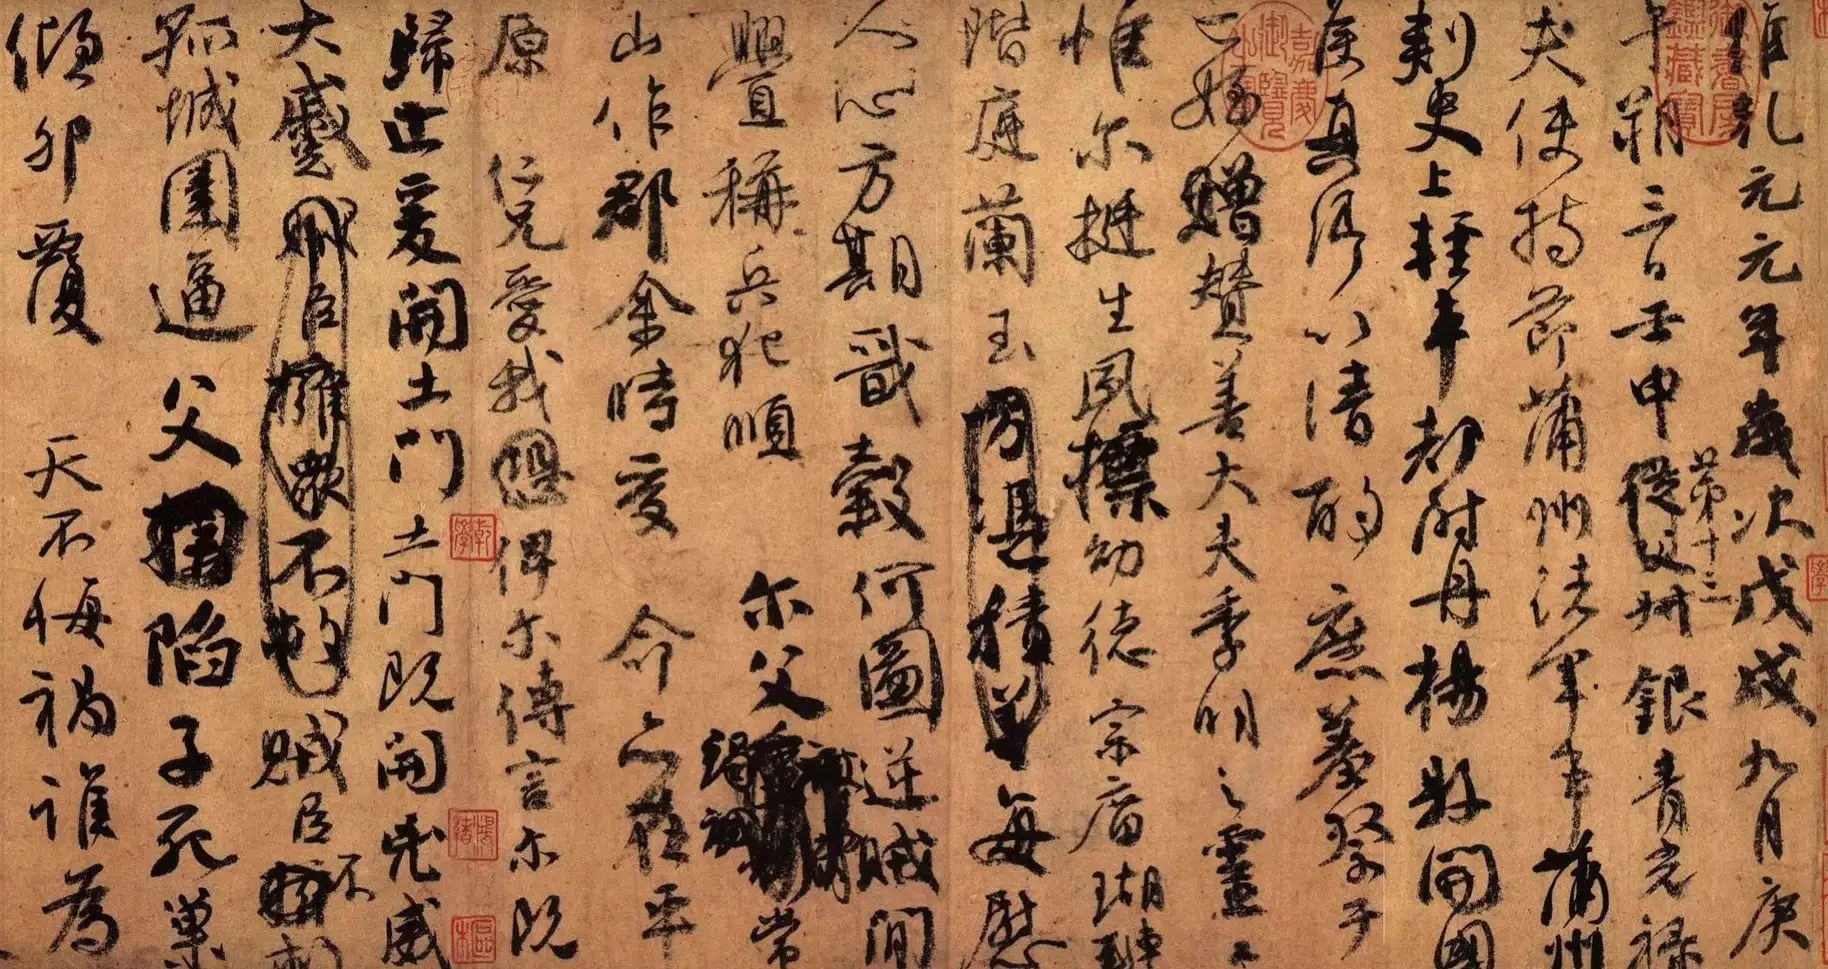 維乾元元年歲次戊戌九月庚
午朔三日壬申第十三從父叔銀青光祿
夫使持節蒲州諸軍事蒲州
刺史上輕車都尉丹楊縣開國
侯真卿以清酌庶羞祭于
亡姪贈贊善大夫季明之靈曰
惟爾挺生夙標幼德宗廟瑚璉
階庭蘭玉方憑積善每慰
人心方期戩穀何圖逆賊閒
釁稱兵犯順爾父竭誠常
山作郡余時受命亦在平
原仁兄愛我恐俾爾傳言爾既
歸止爰開土門土門既開凶威
大蹙賊臣擁眾不救賊臣不救
孤城圍逼父擒陷子死巢
傾卵覆天不悔禍誰為